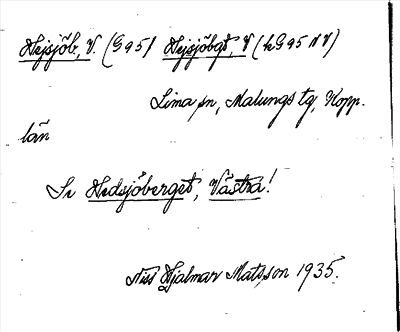 Hejsjöb, V. (G95) Hejsjöbgt, V (kG95 NV)
Lima sn, Malungs tg, Kopp.
län
Se Hedsjöberget, Västra!
Niss Hjalmar Matsson 1935.